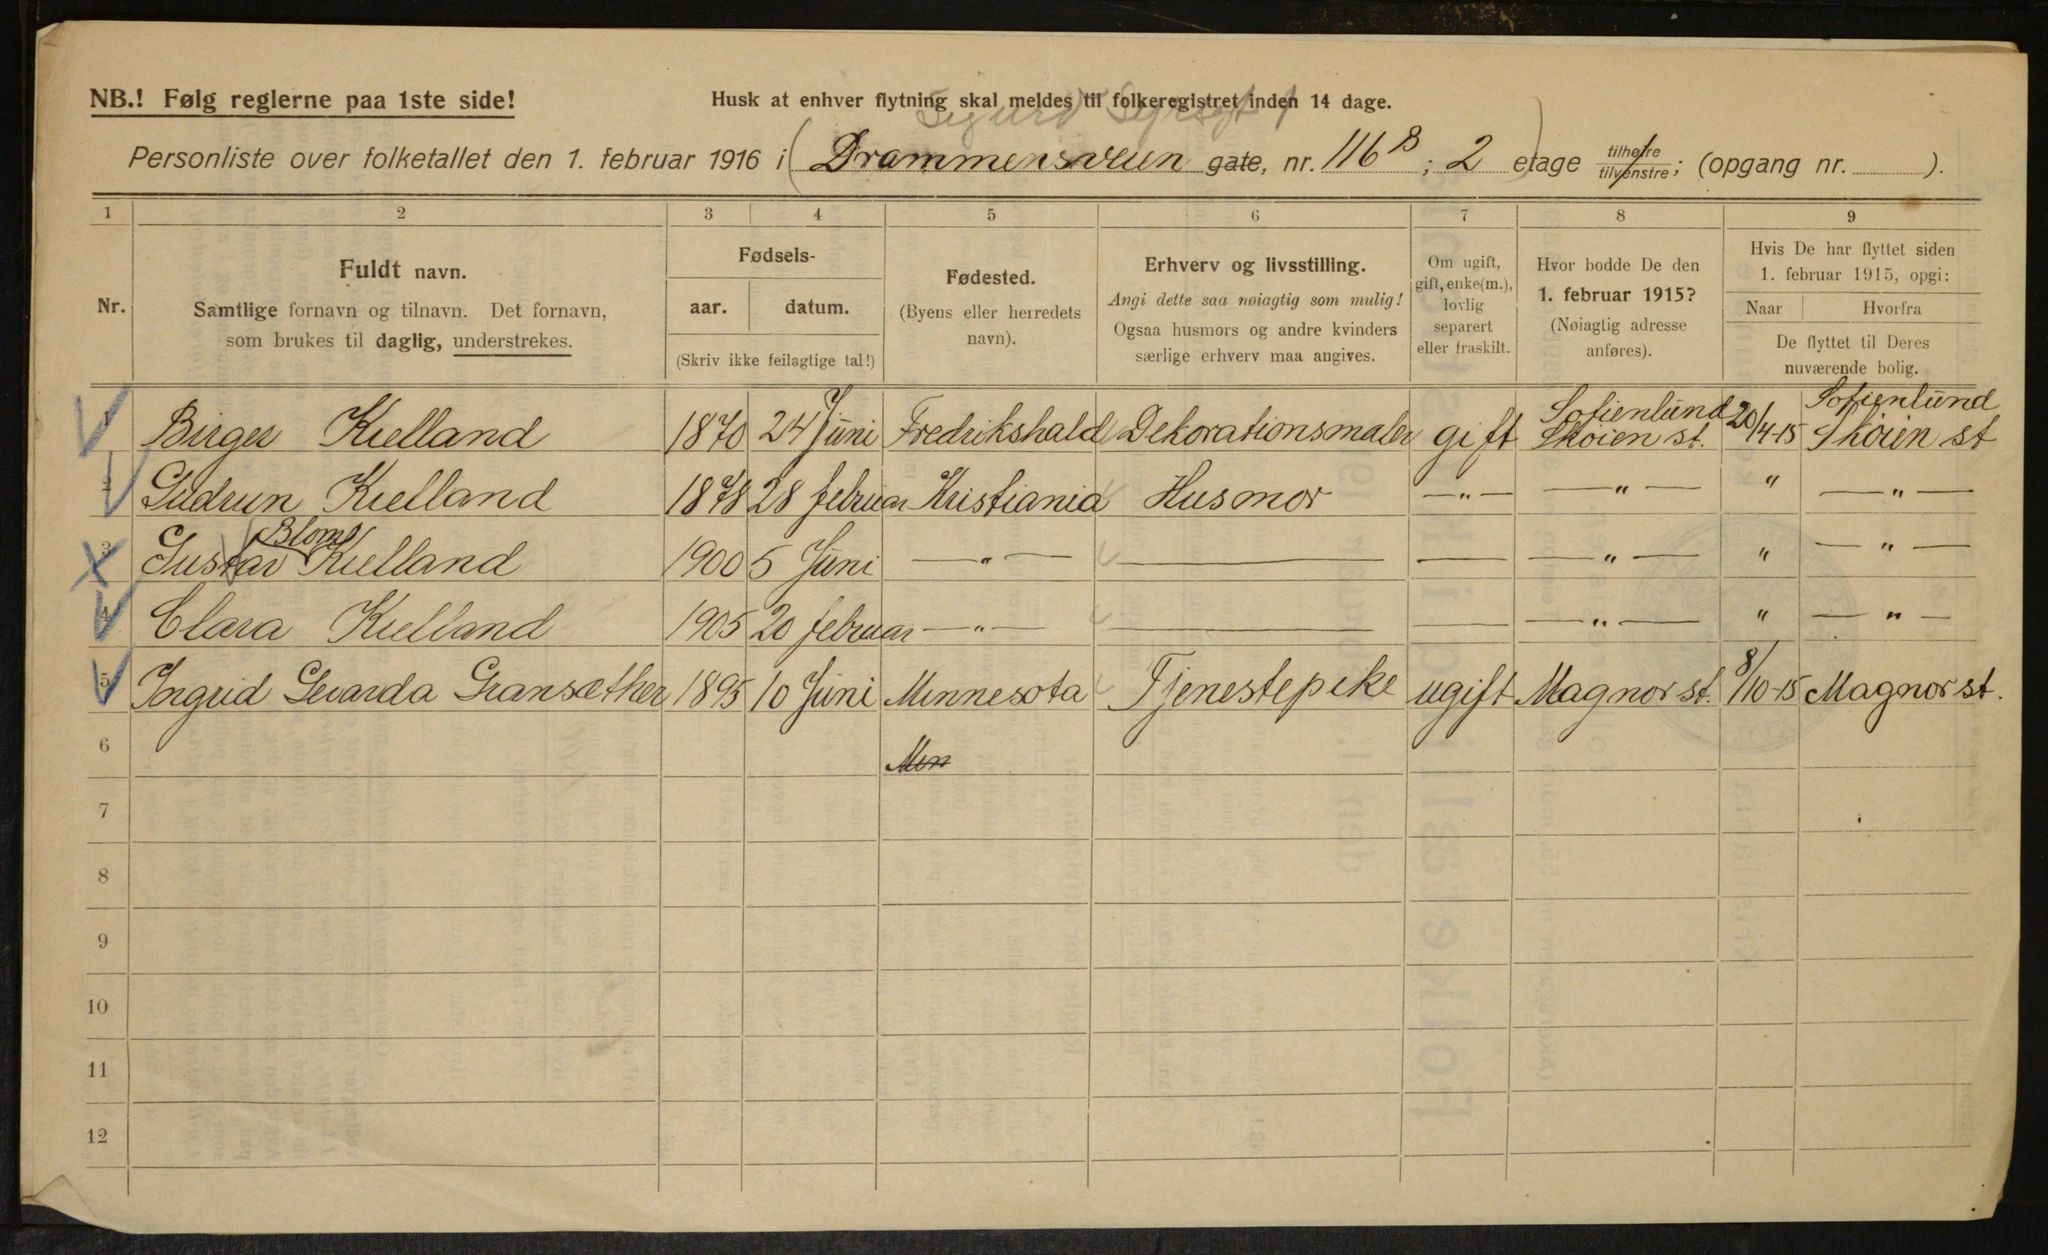 NB.! Følg reglerne paa 1ste side!
Husk at enhver flytning skal meldes til folkeregistret inden 14 dage.
Sigurd Syrsgt 1
Personliste over folketallet den 1. februar 1916 i (Drammensveien gate, nr. 116 B; 2) etage tilhøire tilvenstre; (opgang nr. ).
1 2 3 4 5 6 7 8 9
Nr.
Fuldt navn.
Samtlige fornavn og tilnavn. Det fornavn,
som brukes til daglig, understrekes.
Fødsels-
aar. datum.
(Skriv ikke feilagtige tal!)
Fødested.
(Byens eller herredets
navn).
Erhverv og livsstilling.
Angi dette saa nøiagtig som mulig!
Ogsaa husmors og andre kvinders
særlige erhverv maa angives.
Om ugift,
gift, enke(m.),
lovlig
separert
eller fraskilt.
Hvor bodde De den
1. februar 1915?
(Nøiagtig adresse
anføres).
Hvis De har flyttet siden
1. februar 1915, opgi:
Naar Hvorfra
De flyttet til Deres
nuværende bolig.
1 Birger Kielland 1870 24 Juni Fredrikshald Dekorationsmaler gift Sofienlund Skøien st. 20/4-15 Sofienlund Skøien st
2 Gudrun Kielland 1878 28 februar Kristiania Husmor —"— —"— " —"—
3 Gustav Blom Kielland 1900 5 Juni —"— — — —"— " —"—
4 Clara Kielland 1905 20 februar —"— — — —"— " —"—
5 Ingrid Gevarda Gransæther 1895 10 Juni Minnesota Tjenestepike ugift Magnor st. 8/10-15 Magnor st.
6 Min
7
8
9
10
11
12